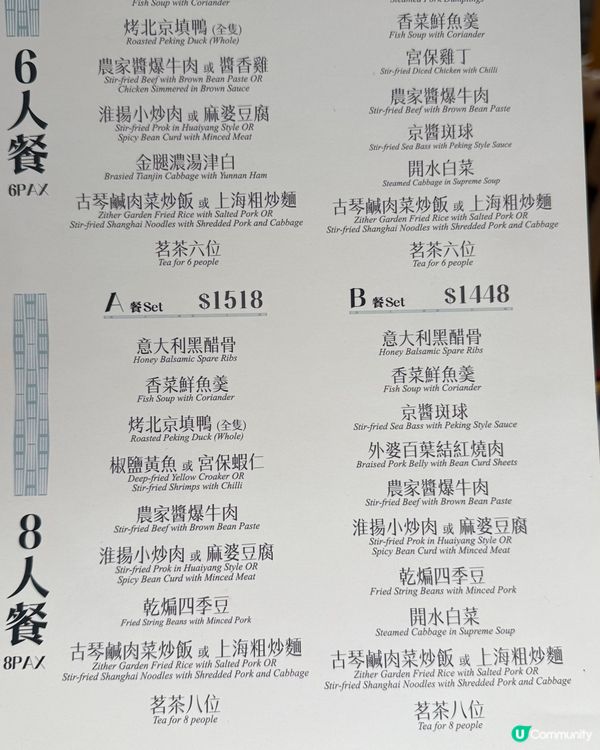 Fish Soup with Coriander
烤北京填鴨 (全隻)
Roasted Peking Duck (Whole)
農家醬爆牛肉 或 醬香雞
Stir-fried Beef with Brown Bean Paste OR
Chicken Simmered in Brown Sauce
淮揚小炒肉 或 麻婆豆腐
Stir-fried Prok in Huaiyang Style OR
Spicy Bean Curd with Minced Meat
金腿濃湯津白
Brasied Tianjin Cabbage with Yunnan Ham
古琴鹹肉菜炒飯 或 上海粗炒麵
Zither Garden Fried Rice with Salted Pork OR
Stir-fried Shanghai Noodles with Shredded Pork and Cabbage
茗茶六位
Tea for 6 people
6人餐
6PAX
香菜鮮魚羹
Fish Soup with Coriander
宮保雞丁
Stir-fried Diced Chicken with Chilli
農家醬爆牛肉
Stir-fried Beef with Brown Bean Paste
京醬斑球
Stir-fried Sea Bass with Peking Style Sauce
開水白菜
Steamed Cabbage in Supreme Soup
古琴鹹肉菜炒飯 或 上海粗炒麵
Zither Garden Fried Rice with Salted Pork OR
Stir-fried Shanghai Noodles with Shredded Pork and Cabbage
茗茶六位
Tea for 6 people
A 餐Set $1518
意大利黑醋骨
Honey Balsamic Spare Ribs
香菜鮮魚羹
Fish Soup with Coriander
烤北京填鴨 (全隻)
Roasted Peking Duck (Whole)
椒鹽黃魚 或 宮保蝦仁
Deep-fried Yellow Croaker OR
Stir-fried Shrimps with Chilli
農家醬爆牛肉
Stir-fried Beef with Brown Bean Paste
淮揚小炒肉 或 麻婆豆腐
Stir-fried Prok in Huaiyang Style OR
Spicy Bean Curd with Minced Meat
乾煸四季豆
Fried String Beans with Minced Pork
古琴鹹肉菜炒飯 或 上海粗炒麵
Zither Garden Fried Rice with Salted Pork OR
Stir-fried Shanghai Noodles with Shredded Pork and Cabbage
茗茶八位
Tea for 8 people
8人餐
8PAX
B 餐Set $1448
意大利黑醋骨
Honey Balsamic Spare Ribs
香菜鮮魚羹
Fish Soup with Coriander
京醬斑球
Stir-fried Sea Bass with Peking Style Sauce
外婆百葉結紅燒肉
Braised Pork Belly with Bean Curd Sheets
農家醬爆牛肉
Stir-fried Beef with Brown Bean Paste
淮揚小炒肉 或 麻婆豆腐
Stir-fried Prok in Huaiyang Style OR
Spicy Bean Curd with Minced Meat
乾煸四季豆
Fried String Beans with Minced Pork
開水白菜
Steamed Cabbage in Supreme Soup
古琴鹹肉菜炒飯 或 上海粗炒麵
Zither Garden Fried Rice with Salted Pork OR
Stir-fried Shanghai Noodles with Shredded Pork and Cabbage
茗茶八位
Tea for 8 people
U Community